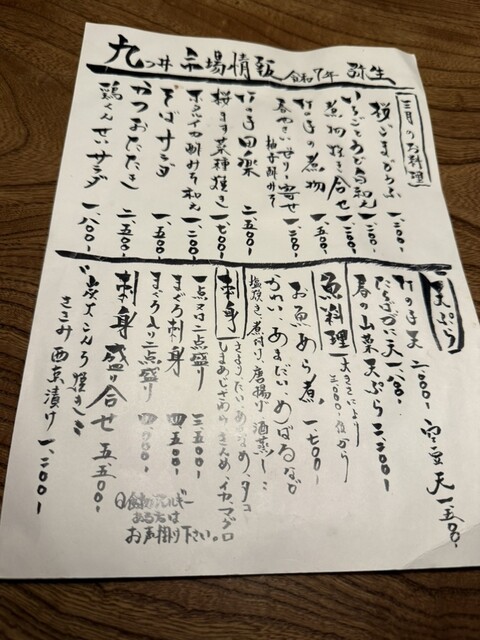 九つ井 市場情報 令和7年 弥生
三月のお料理
桜ごまどうふ 一、二〇〇-
いちごとうど白和え 一、二〇〇-
煮物炊き合せ 一、二〇〇-
竹の子の煮物 一、五〇〇-
春やさいせりと寄せ 一、二〇〇-
柚子酢みそ
竹の子田楽 二、五〇〇-
桜ます菜種焼き 一、七〇〇-
ホタルイカ酢みそ和え 一、二〇〇-
そばサラダ 一、五〇〇-
かつおたたき 二、五〇〇-
鶏くんせいサラダ 一、八〇〇-
天ぷら
竹の子天 二、〇〇〇-
空豆天 一、五〇〇-
たらばがに天 一、八〇〇-
春の山菜天ぷら 二、二〇〇-
魚料理
大きさにより
二〇〇〇-位から
お魚あら煮 一、七〇〇-
かれい、あまだい、めばるなど
塩焼き、煮付け、唐揚げ、酒蒸し
刺身
しまあじ、さわら、きんめ、イカ、マグロ
一点又は二点盛り 三、五〇〇-
まぐろ刺身 四、五〇〇-
まぐろ入り二点盛り 四、〇〇〇-
刺身盛り合せ 五、五〇〇-
〝炭火こんろ焼き〟
ささみ西京漬け 一、二〇〇-
食物アレルギー
ある方は
お声掛け下さい。